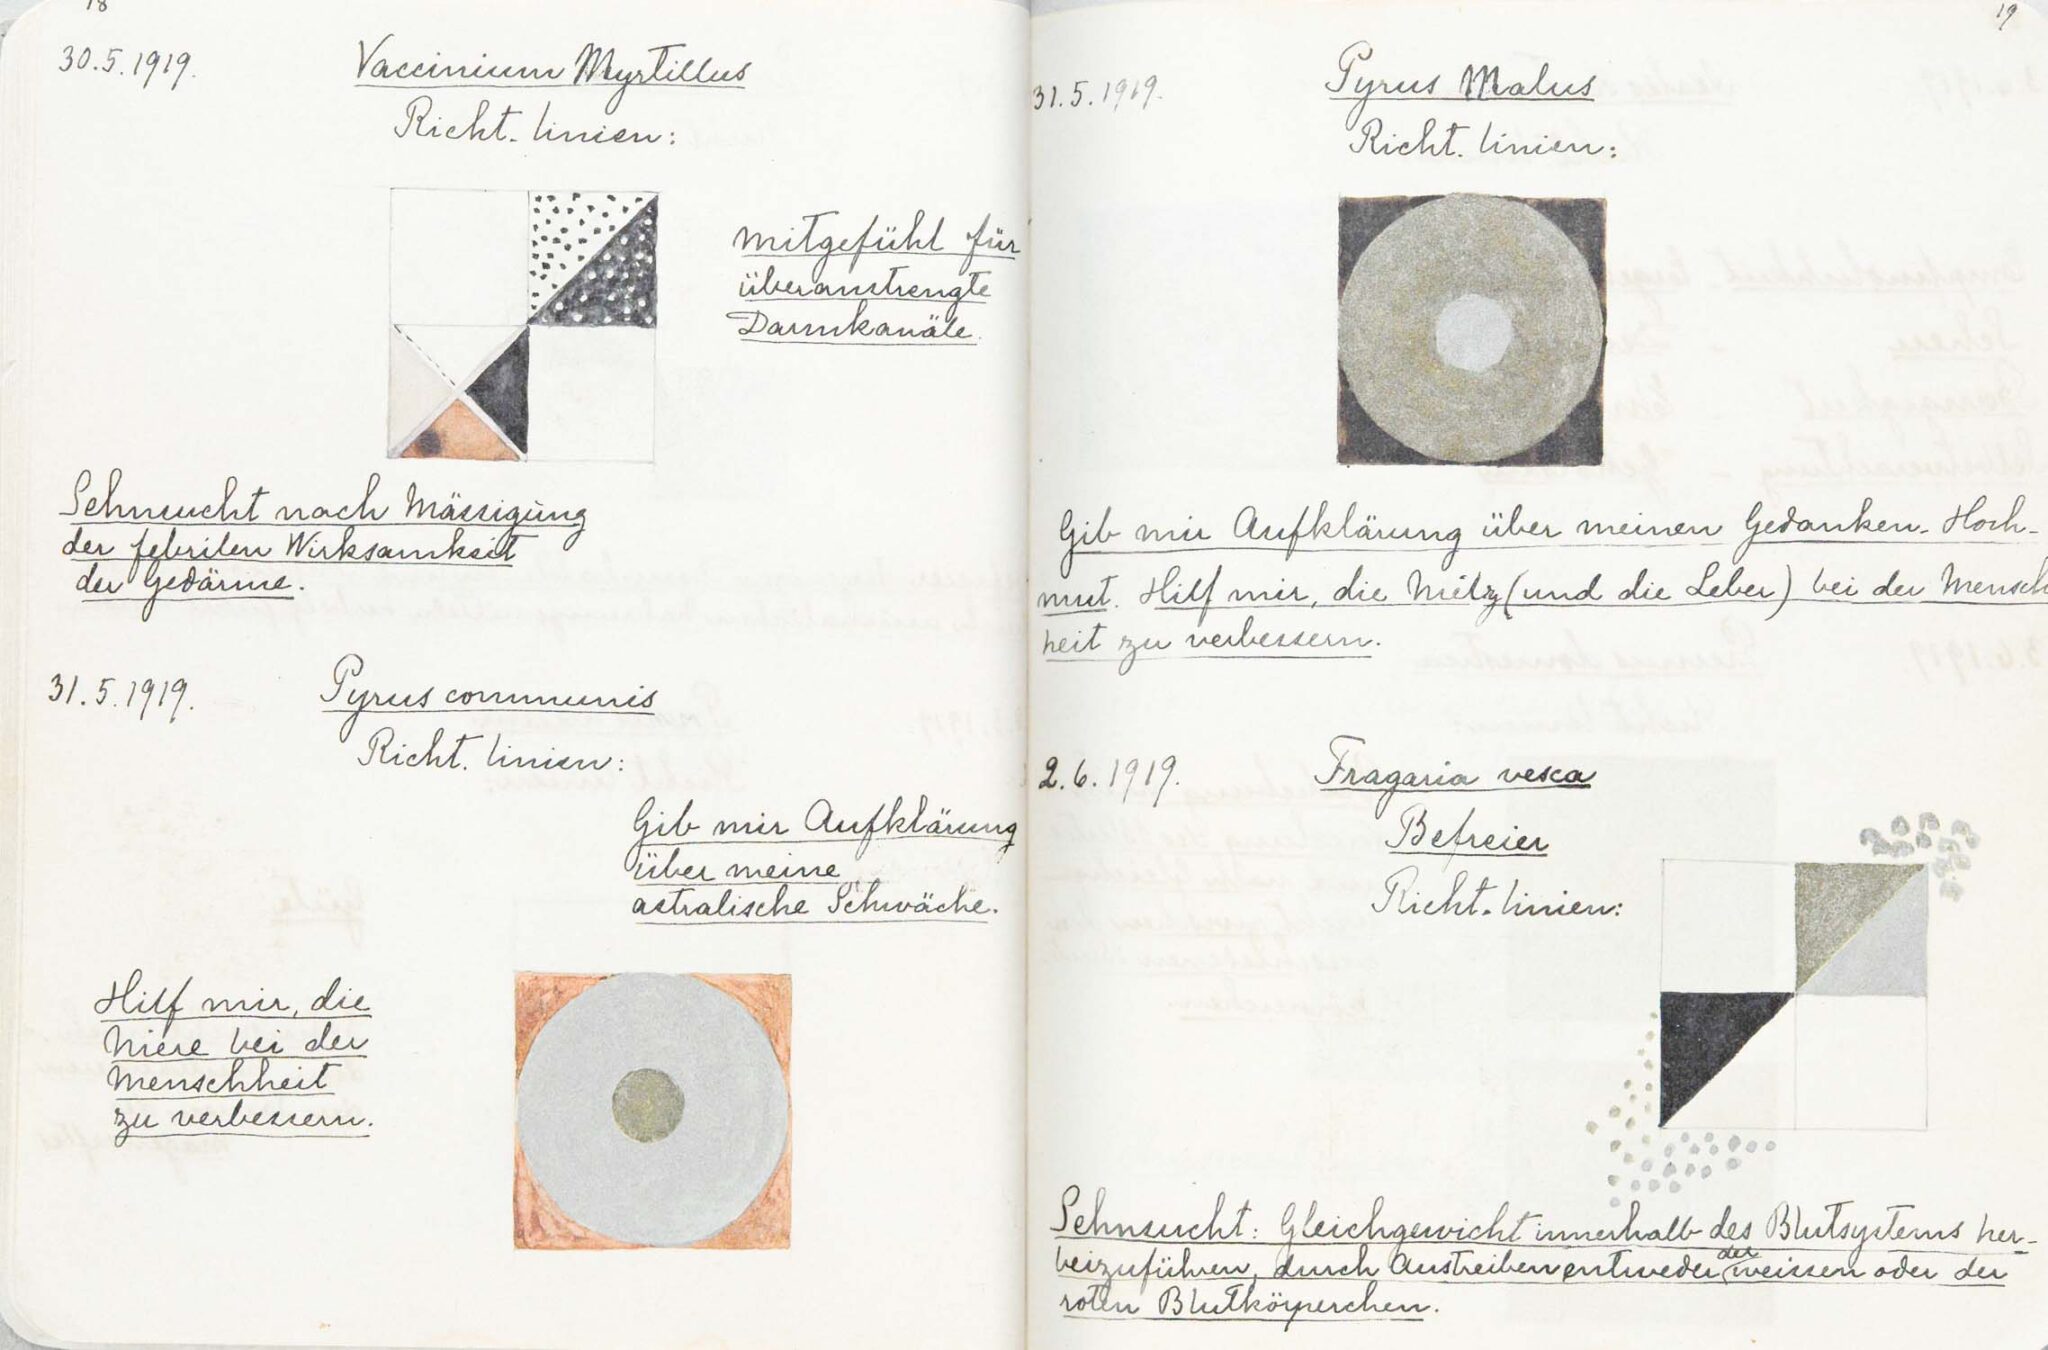 18
30.5.1919.
Vaccinium Myrtillus
Richt. linien:
Mitgefühl für
überanstrengte
Darmkanäle.
Sehnsucht nach Mässigung
der febrilen Wirksamkeit
der Gedärme.
31.5.1919.
Pyrus communis
Richt. linien:
Gib mir Aufklärung
über meine
astralische Schwäche.
Hilf mir, die
Niere bei der
Menschheit
zu verbessern.
19
31.5.1919.
Pyrus Malus
Richt. linien:
Gib mir Aufklärung über meinen Gedanken-Hoch-
mut. Hilf mir, die Milz (und die Leber) bei der Mensch
heit zu verbessern.
2.6.1919.
Fragaria vesca
Befreier
Richt. linien:
Sehnsucht: Gleichgewicht innerhalb des Blutsystems her-
beizuführen, durch Austreiben entweder der weissen oder der
roten Blutkörperchen.